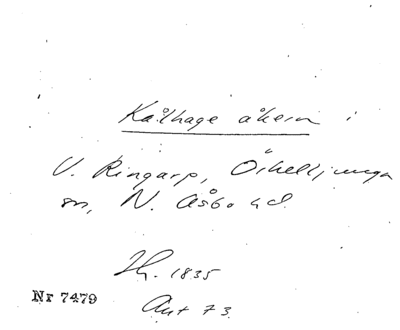 Kålhage åkern i
V. Ringarp, Örkelljunga
sn, N. Åsbo hd.
Lh. 1835
Nr 7479
Akt 73.